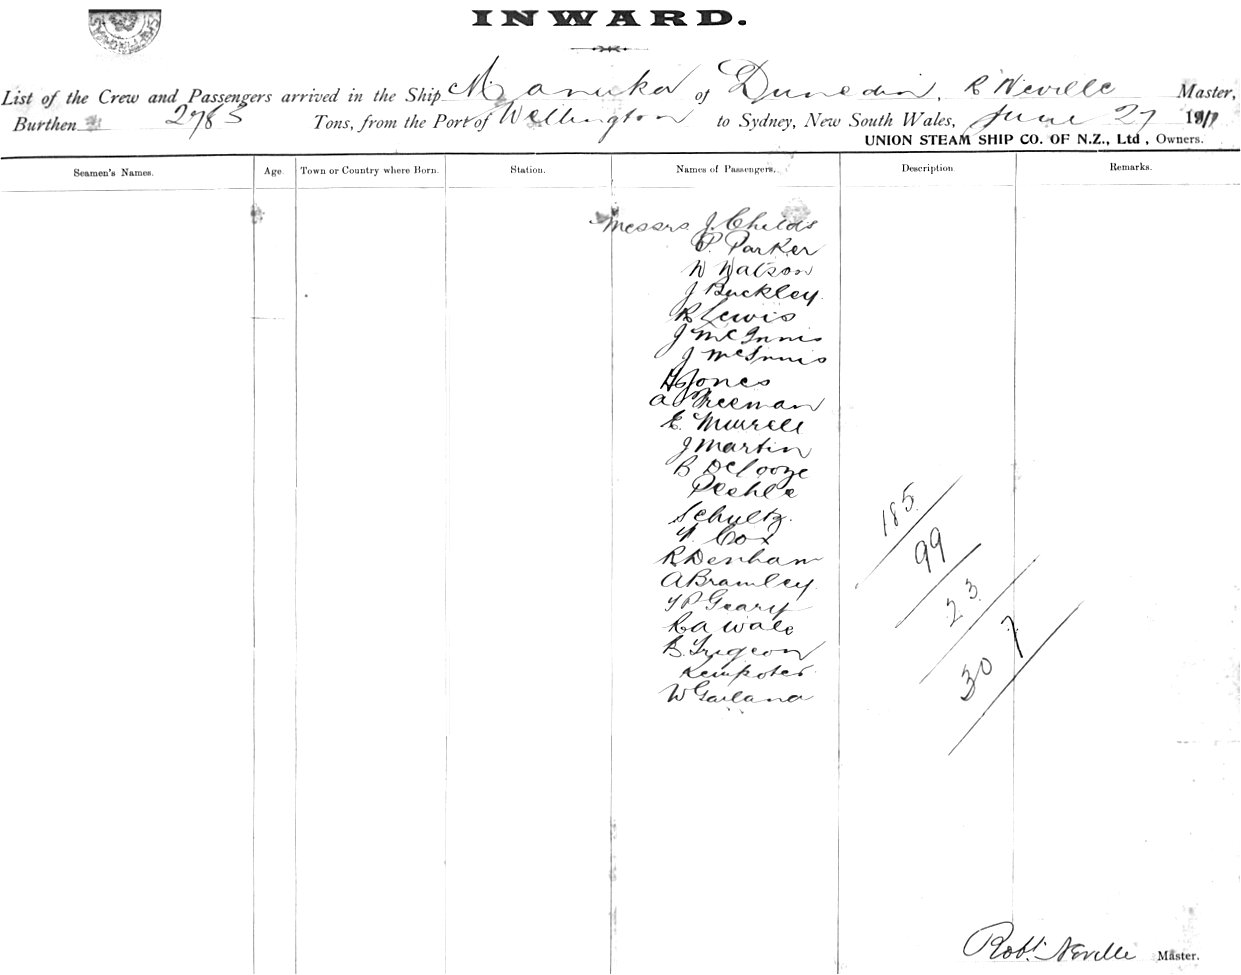 INWARD.
List of the Crew and Passengers arrived in the Ship Manuka of Dunedin, R Neville Master,
Burthen 2783 Tons, from the Port of Wellington to Sydney, New South Wales, June 27 1911
UNION STEAM SHIP CO. OF N.Z., Ltd, Owners.
Seamen's Names. Age. Town or Country where Born. Station. Names of Passengers. Description. Remarks.
Messrs J. Childs
P. Parker
W Watson
J Buckley
R Lewis
J McInnis
J McInnis
Jones
A Freeman
E. Murrell
J Martin
B
Schultz.
Cox
R Denham
A Bramley
T P Geary
R A Wale
B.
W Garland
185
99
23
307
Robt. Neville Master.